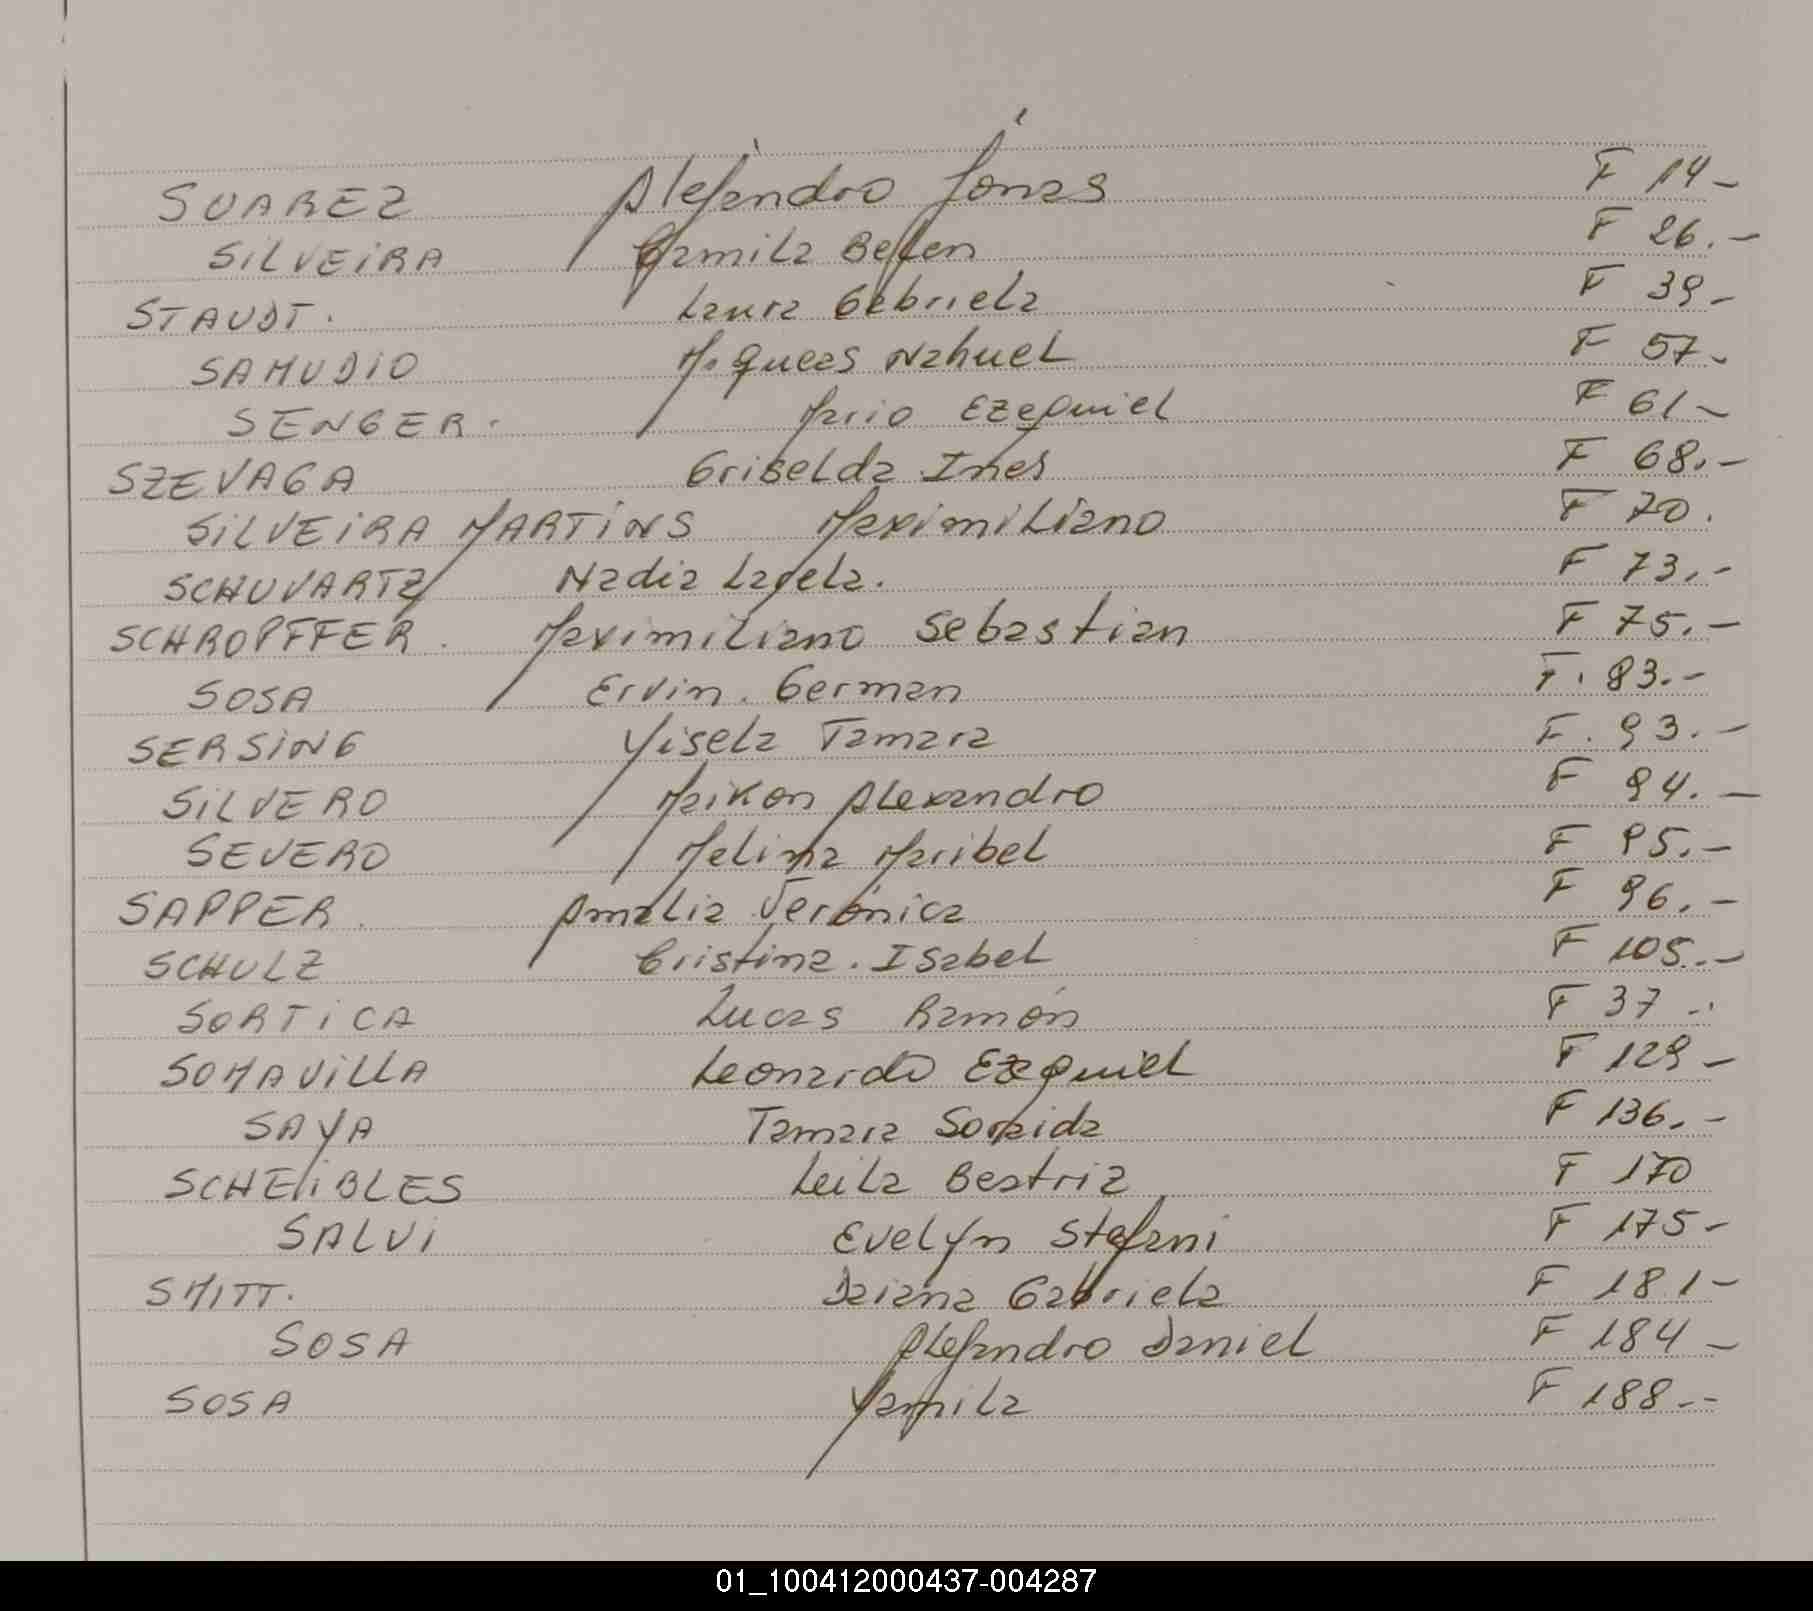 SUAREZ Alejandro Jonas F 14-
SiLVEiRA Camila Belen F 26.-
STAUDT. Laura Gabriela F 39-
SAMUDiO M. Nahuel F 57-
SENGER. Mario Ezequiel F 61-
SZEVAGA Griselda Ines F 68.-
SiLVEiRA MARTiNS Maximiliano F 70.
SCHUVARTZ Nadia F 73.-
SCHROPFFER. Maximiliano Sebastian F 75.-
SOSA Ervin. German F. 83.-
SERSiNG Yisela Tamara F. 93.-
SiLVERO Maikon Alexandro F 94.-
SEVERO Melina Maribel F 95.-
SAPPER. Amalia Verónica F 96.-
SCHULZ Cristina. Isabel F 105.-
SORTiCA Lucas Ramón F 37-.
SOMAViLLA Leonardo Ezequiel F 129-
SAYA Tamara Soraida F 136.-
SCHEiBLES Leila Beatriz F 170
SALVi Evelyn Stefani F 175-
SMiTT. Daiana Gabriela F 181-
SOSA Alejandro Daniel F 184-
SOSA Yamila F 188.--
01_100412000437-004287